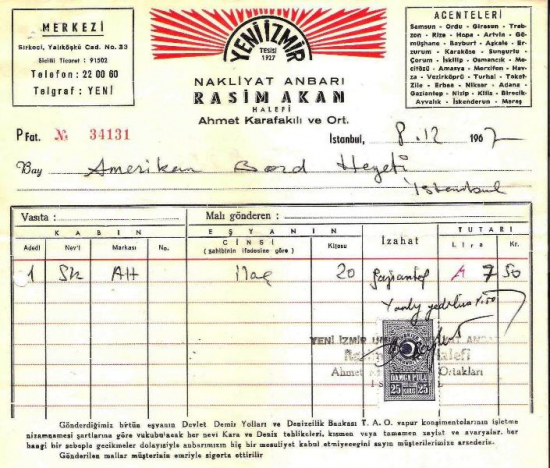 MERKEZİ
Sirkeci, Yalıköşkü Cad. No. 33
Sicilli Ticaret : 91502
Telefon : 22 00 60
Telgraf : YENİ
YENİ İZMİR
TESİSİ
1927
NAKLİYAT ANBARI
RASİM AKAN
HALEFİ
Ahmet Karafakılı ve Ort.
ACENTELERİ
Samsun - Ordu - Giresun - Trab-
zon - Rize - Hopa - Artvin - Gü-
müşhane - Bayburt - Aşkale - Er-
zurum - Karaköse - Sungurlu -
Çorum - İskilip - Osmancık - Me-
citözü - Amasya - Merzifon - Hav-
za - Vezirköprü - Turhal - Tokat-
Zile - Erbaa - Niksar - Adana -
Gaziantep - Nizip - Kilis - Birecik-
Ayvalık - İskenderun - Maraş
P Fat. № 34131
İstanbul, 8.12 1967
Bay Amerikan Bord Heyeti
İstanbul
Vasıta : Malı gönderen :
KABIN EŞYANIN TUTARI
Adedi Nev'i Markası No. CİNSİ Kilosu İzahat Lira Kr.
(Sahibinin ifadesine göre)
1 Sk AH İlaç 20 Gaziantep A 7 50
Yalnız yedilira 50
YENİ İZMİR
Halefi
Ahmet Ortakları
DAMGA PULU
25 KURUŞ 25
Gönderdiğimiz bütün eşyanın Devlet Demir Yolları ve Denizcilik Bankası T. A. O. vapur konşimentolarının işletme
nizamnamesi şartlarına göre vukubulacak her nevi Kara ve Deniz tehlikeleri, kısmen veya tamamen zayiat ve avaryalar, her
hangi bir sebeple gecikmeler dolayısiyle anbarımızın hiç bir mesuliyet kabul etmiyeceğini sayın müşterilerimize arzederiz.
Gönderilen mallar müşterinin emriyle sigorta ettirilir